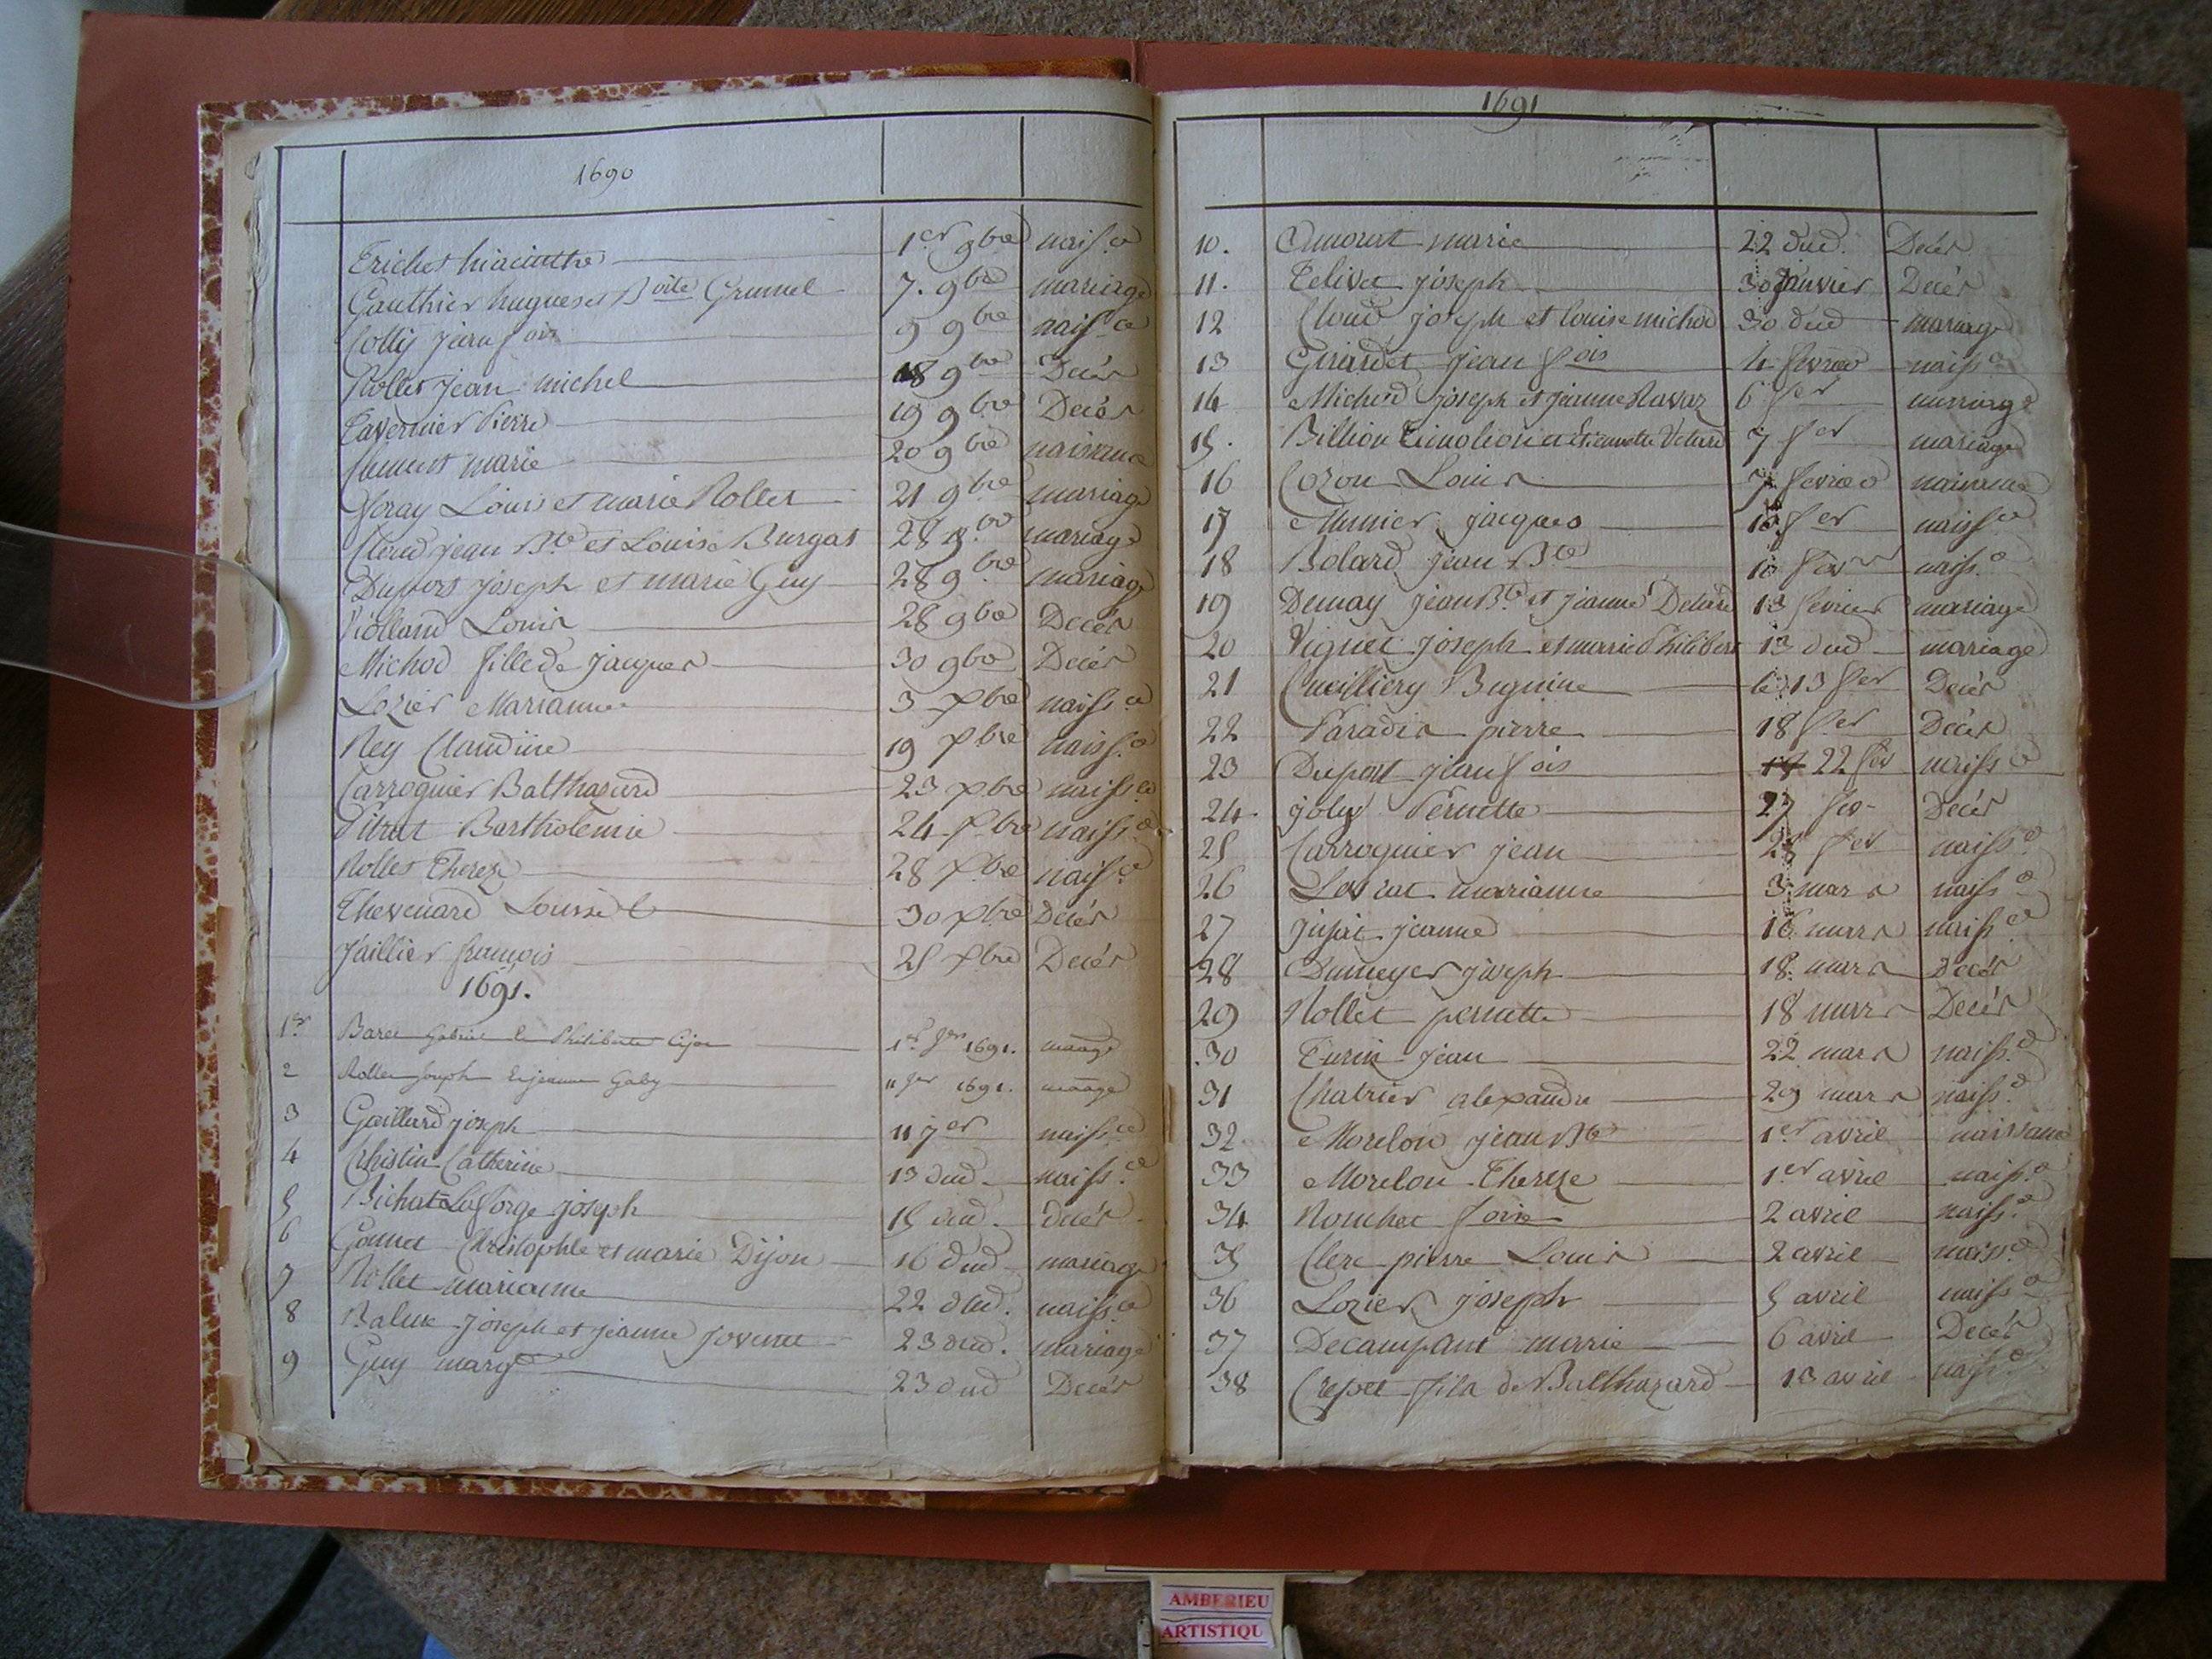 1690
Trichet hiacinthe 1er 9bre naiss.ce
Gauthier hugues et Boite Grumel 7. 9bre mariage
Colly jean fois 9 9bre naiss.ce
Rollet jean michel 18 9bre Decés
Tavernier Pierre 19 9bre Decés
marie 20 9bre naissance
Louis et marie Rollet 21 9bre mariage
Claud jean Bte et Louise Burgat 28 9bre mariage
Dupors joseph et marie Guy 28 9bre mariage
Violland Louis 28 9bre Decés
Michod fille de jacques 30 9bre Decés
Lozier Marianne 3 xbre naiss.ce
Rey Claudine 19 xbre naiss.ce
Carroguier Balthasard 23 xbre naiss.ce
Bartholemie 24 xbre naiss.ce
Rollet Thereze 28 xbre naiss.ce
Thevenard 30 xbre Decés
Jaillier francois 25 xbre Decés
1691.
1er Gabriel et Philiberte 1er jer 1691. mariage
2 Rollet Joseph et jeanne Gaby 11 jer 1691. mariage
3 Gaillard joseph 11 jer naiss.ce
4 Christin Catherine 13 dud. naiss.ce
5 Bichat Laforge joseph 15 dud. decés
6 Gonnet Christophle et marie Dijon 16 dud mariage
7 Rollet marianne 22 dud. naiss.ce
8 joseph et jeanne 23 dud. mariage
9 Guy margte 23 dud Decés
1691
10. Amorut marie 22 dud. Decés
11. Telivet joseph 30 Janvier Decés
12 Claud joseph et Louise michod 30 dud mariage
13 Girardet jean fois 4 fevrier naiss.ce
14 Michod joseph et jeanne Ravaz 6 fer mariage
15. Billion Timoleon et Etiennette 7 fer mariage
16 Cozon Louis 7 fevrier naissance
17 Munier jacques 10 fer naiss.ce
18 Bolard jean Bte 10 fevr naiss.ce
19 Demay jean Bte et jeanne 13 fevrier mariage
20 Viguet joseph et marie Philibert 13 dud mariage
21 Cueilliery Buguine le 13 fer Decés
22 Paradis pierre 18 fer Decés
23 Duport jean fois 22 fer naiss.ce
24. joly Pernette 27 fer Decés
25 Carroguier jean 28 fer naiss.ce
26 Levrat marianne 3 mars naiss.ce
27 jeanne 16 mars naiss.ce
28 Dumeyer joseph 18. mars Decés
29 Rollet pernette 18 mars Decés
30 Turin jean 22 mars naiss.ce
31 Chatrier alexandre 29 mars naiss.ce
32 Morelon jean Bte 1er avril naissance
33 Morelon Thereze 1er avril naiss.ce
34 Rouchet foise 2 avril naiss.ce
35 Clerc pierre Louis 2 avril naiss.ce
36 Lozier joseph 5 avril naiss.ce
37 Decampant marie 6 avril Decés
38 Crepet fils de Balthazard 13 avril naiss.ce
AMBERIEU
ARTISTIQU